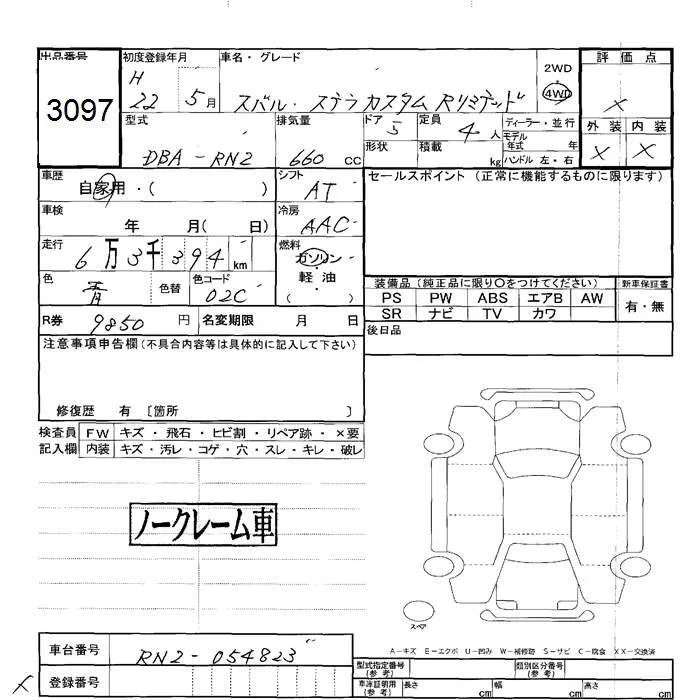 出品番号
3097
初度登録年月
H
22 5月
車名・グレード
スバル・ステラ カスタム Rリミテッド
2WD
4WD
評価点
×
外装 内装
× ×
型式
DBA-RN2
排気量
660 cc
ドア 5
形状
定員 4人
積載 kg
ディーラー・並行
モデル年式 年
ハンドル 左・右
車歴
自家用・( )
シフト
AT
車検
年 月( 日)
冷房
AAC
走行
6万3千394 km
燃料
ガソリン・軽油・( )
色
青
色替
色コード
02C
R券 9850 円
名変期限 月 日
セールスポイント (正常に機能するものに限ります)
装備品 (純正品に限り○をつけてください)
新車保証書
PS PW ABS エアB AW
SR ナビ TV カワ
有・無
後日品
注意事項申告欄(不具合内容等は具体的に記入して下さい)
修復歴 有 [箇所 ]
検査員記入欄
FW キズ・飛石・ヒビ割・リペア跡・×要
内装 キズ・汚レ・コゲ・穴・スレ・キレ・破レ
ノークレーム車
スペア
A-キズ E-エクボ U-凹み W-補修跡 S-サビ C-腐食 XX-交換済
車台番号
RN2-054823
× 登録番号
型式指定番号(参考)
類別区分番号(参考)
車庫証明用(参考)
長さ cm
幅 cm
高さ cm